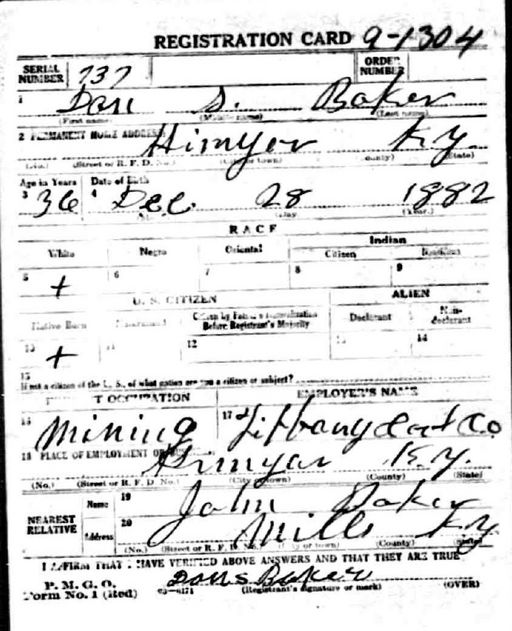 REGISTRATION CARD 9-1304
SERIAL NUMBER 737 ORDER NUMBER
1 Dan S. Baker
(First name) (Middle name) (Last name)
2 PERMANENT HOME ADDRESS Himyar Ky
(No.) (Street or R. F. D. No.) (City or town) (County) (State)
Age in Years Date of Birth
3 36 4 Dec. 28 1882
Day (Year.)
RACE
White Negro Oriental Indian
Citizen
5 + 6 7 8 9
U. S. CITIZEN ALIEN
Native Born Before Registrant's Majority Declarant Non-declarant
10 + 11 12 13 14
15
If not a citizen of the U. S., of what nation are you a citizen or subject?
T OCCUPATION EMPLOYER'S NAME
16 Mining 17 Co
18 PLACE OF EMPLOYMENT OR Himyar Ky.
(No.) (Street or R. F. D. No.) (City or town) (County) (State)
NEAREST RELATIVE
Name 19 John Baker
Address 20 Mills Ky
(No.) (Street or R. F. D. No.) (City or town) (County) (State)
I AFFIRM THAT I HAVE VERIFIED ABOVE ANSWERS AND THAT THEY ARE TRUE
P. M. G. O.
Form No. 1 (Red) 03-6171 Dan S Baker
(Registrant's signature or mark) (OVER)